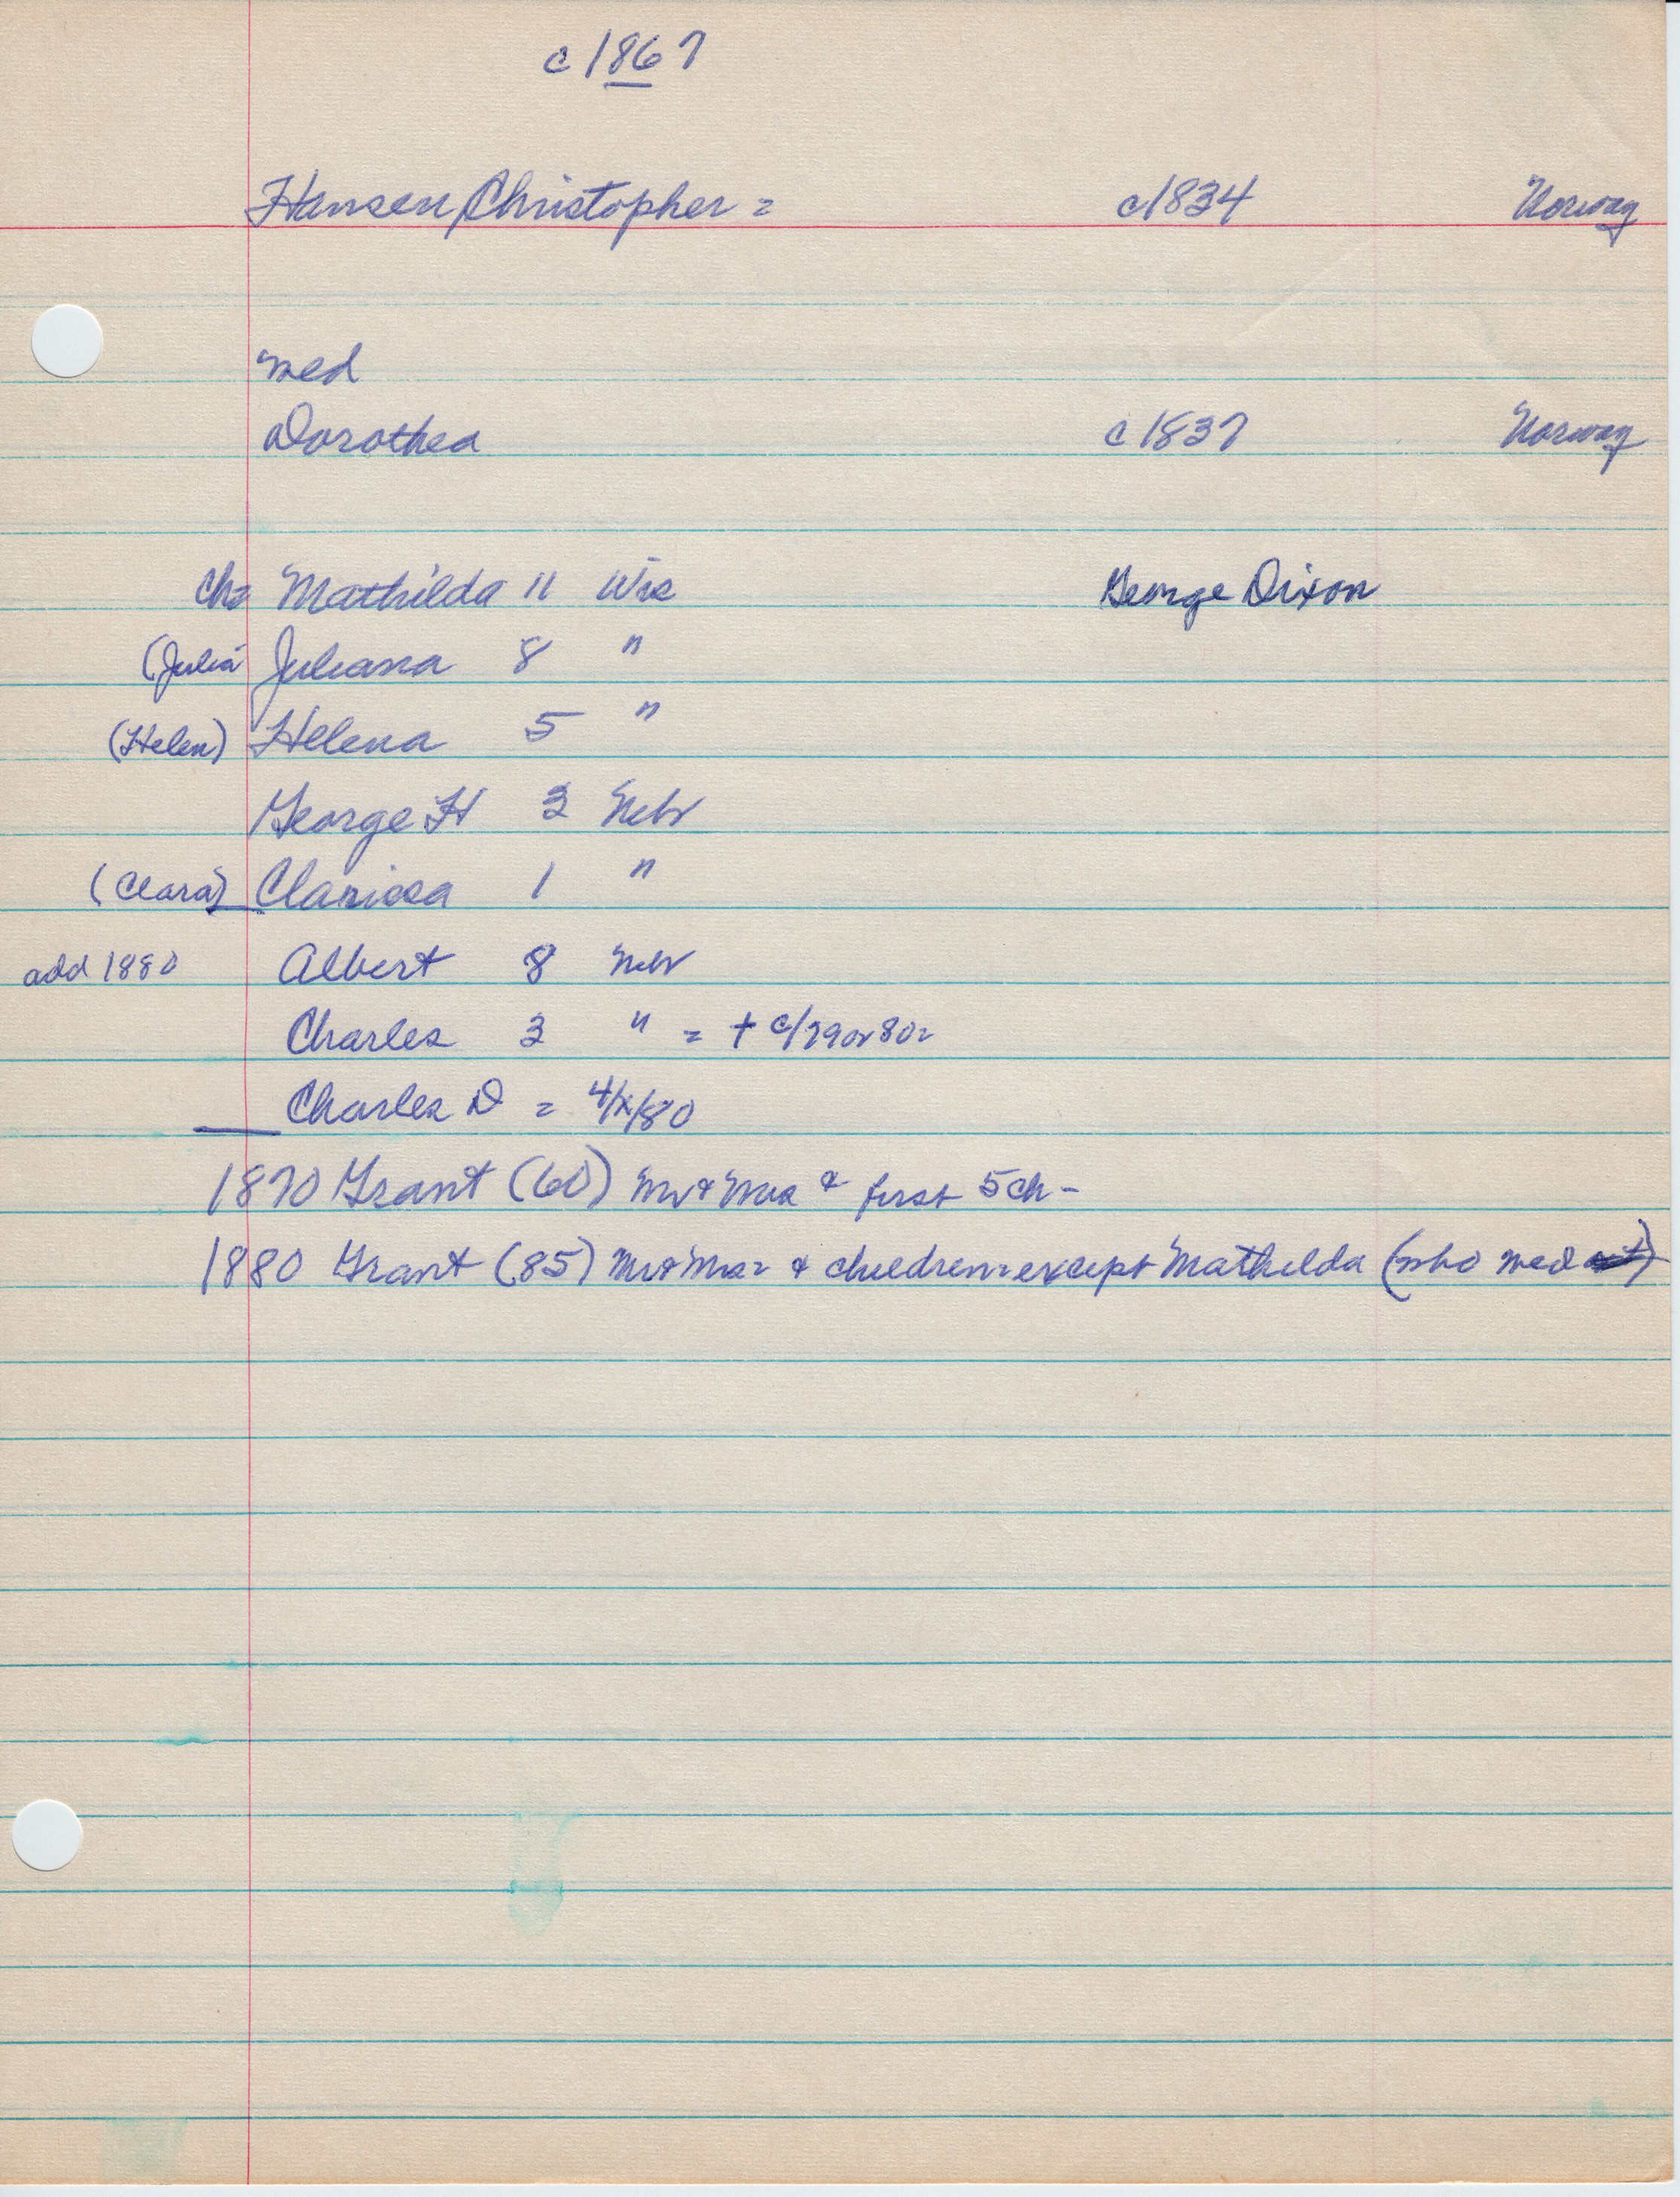 c 1867
Hansen, Christopher = c1834 Norway
med
Dorothea c 1837 Norway
Ch= Mathilda 11 Wis George Dixon
(Julia Juliana 8 "
(Helen) Helena 5 "
George H 3 Nebr
(Clara) Clarissa 1 "
add 1880 Albert 8 Nebr
Charles 3 " = + c/79 or 80=
Charles D = 4/x/80
1870 Grant (60) Mr & Mrs & first 5 ch -
1880 Grant (85) Mr & Mrs = & children = except Mathilda (who med)